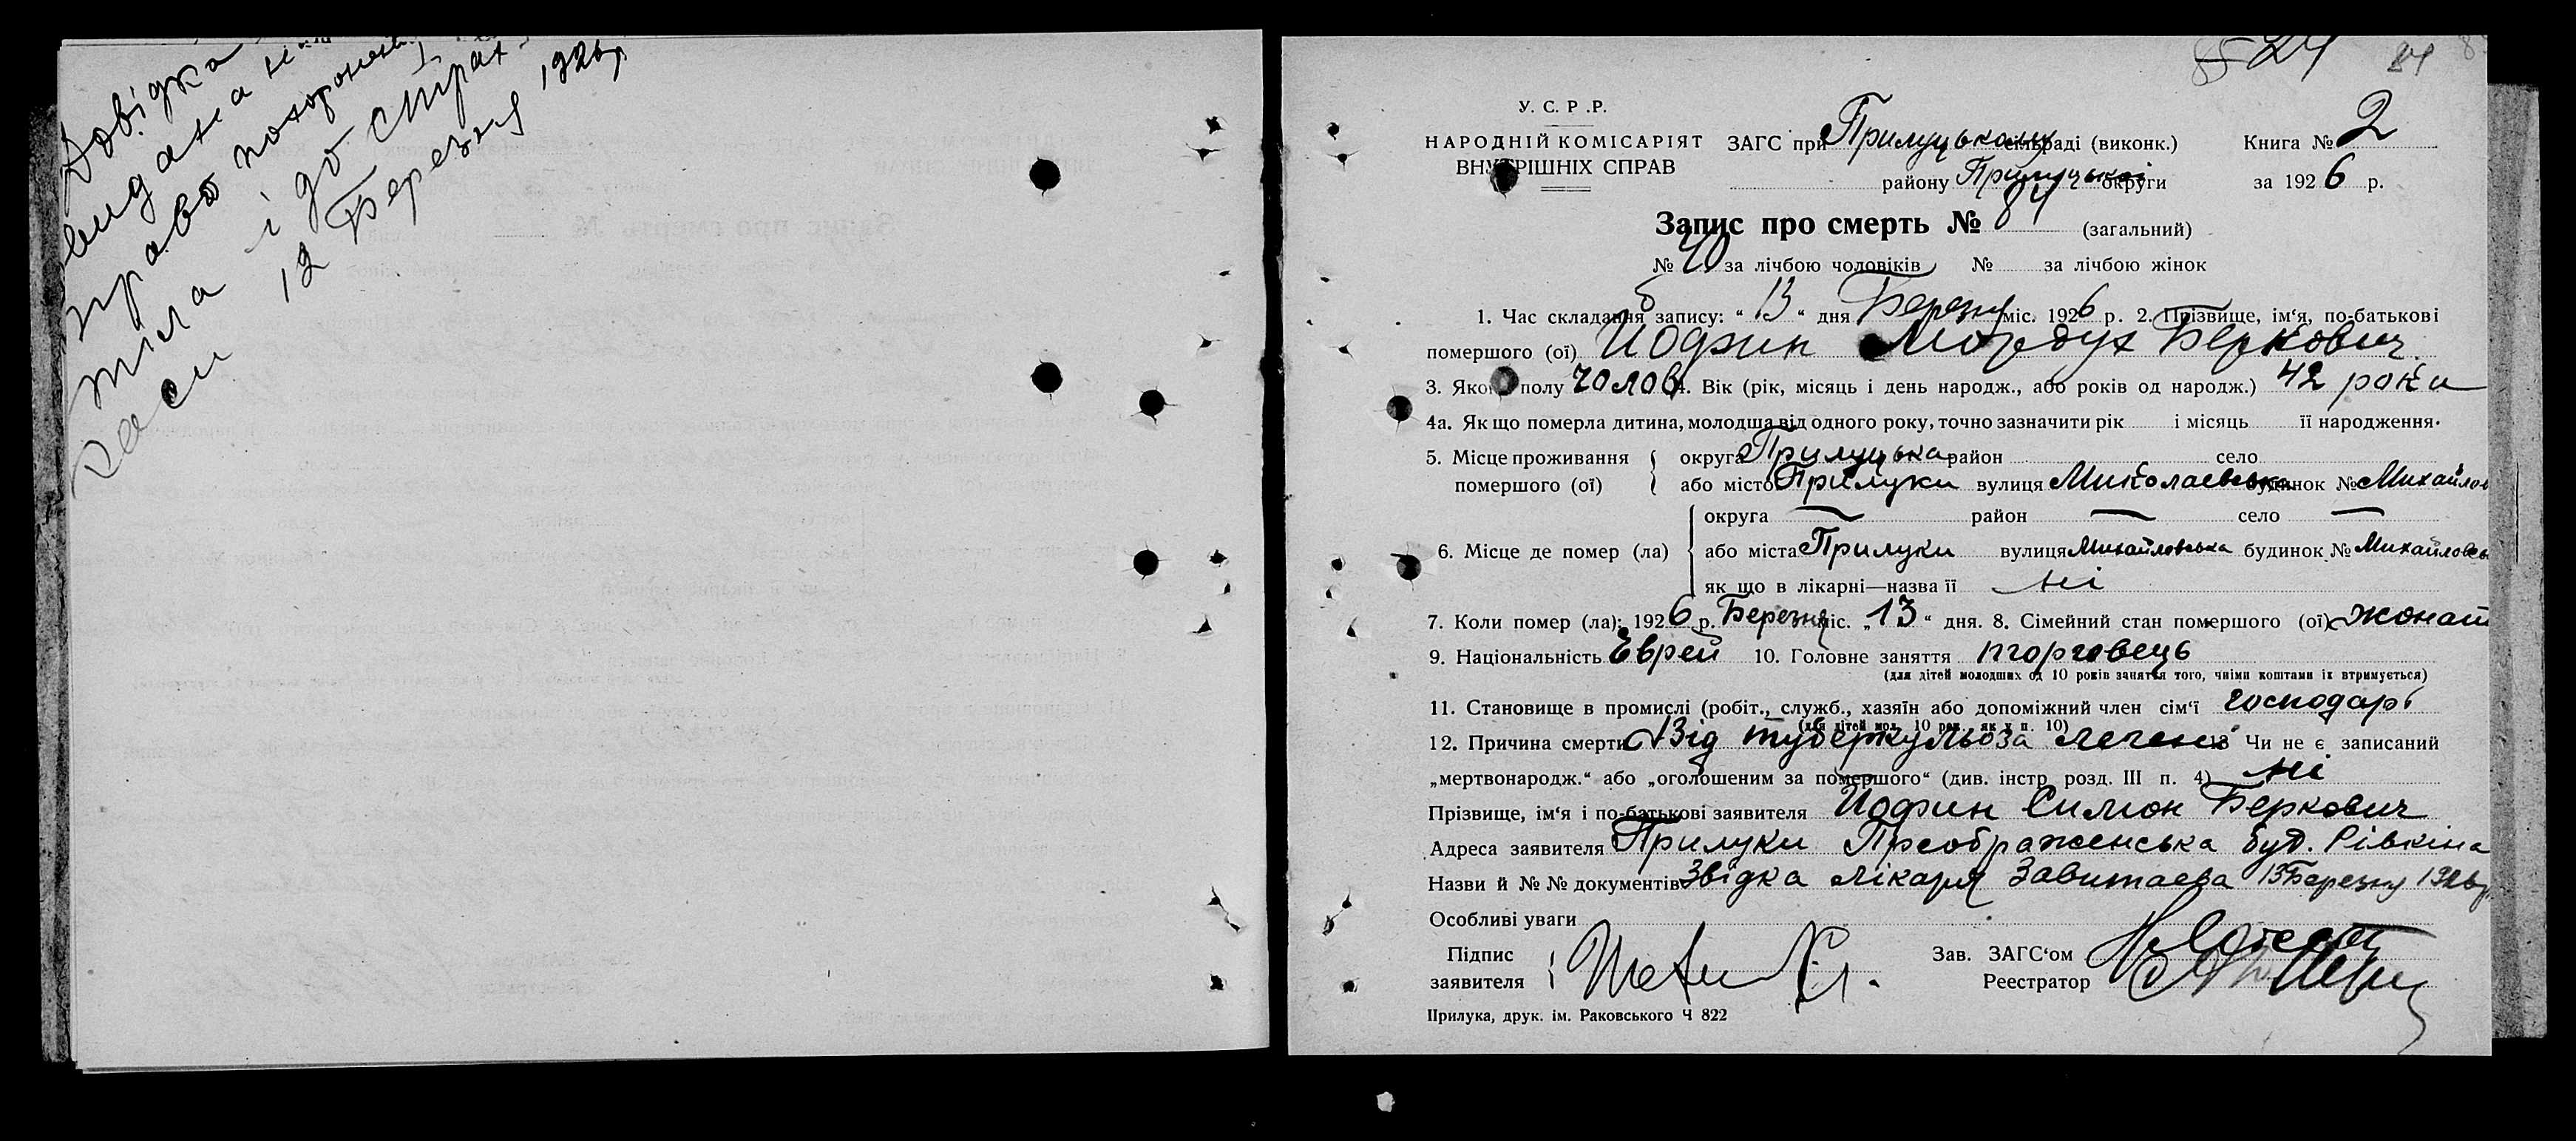 Довідка
видана на
право похорон
тіла і до страх
каси
12 Березня 1926 р.
84
У. С. Р .Р.
НАРОДНІЙ КОМІСАРІЯТ
ВНУТРІШНІХ СПРАВ
ЗАГС при Прилуцькому сільраді (виконк.)
Книга № 2
району Прилуцької округи
за 1926 р.
Запис про смерть № 84 (загальний)
№ 40 за лічбою чоловіків № за лічбою жінок
1. Час складання запису: “ 13 “ дня Березня міс. 1926 р. 2. Прізвище, ім‘я, по-батькові
помершого (ої) Иофин Мордух Беркович
3. Яко полу чолов. 4. Вік (рік, місяць і день народж., або років од народж.) 42 рока
4а. Як що померла дитина, молодша від одного року, точно зазначити рік і місяць її народження.
5. Місце проживання помершого (ої) округа Прилуцька район село
або місто Прилуки вулиця Миколаевська будинок № Михайлов
6. Місце де помер (ла) округа — район — село —
або міста Прилуки вулиця Михайловська будинок № Михайловсь
як що в лікарні—назва її ні
7. Коли помер (ла): 1926 р. Березня міс. „13“ дня. 8. Сімейний стан помершого (ої) жонат
9. Національність Еврей 10. Головне заняття торговець
(для дітей молодших од 10 років заняття того, чиїми коштами їх втримується)
11. Становище в промислі (робіт., служб., хазяїн або допоміжний член сім‘ї господарь
(для дітей мол. 10 рок. як у п. 10)
12. Причина смерти Від туберкульоза легень 13 Чи не є записаний
„мертвонародж.“ або „оголошеним за помершого“ (див. інстр. розд. III п. 4) ні
Прізвище, ім‘я і по-батькові заявителя Иофин Симон Беркович
Адреса заявителя Прилуки Преображенська буд. Рівкіна
Назви й №№ документів Звідка лікаря Завитаева 13 Березня 1926 р.
Особливі уваги
Підпис заявителя
Зав. ЗАГС‘ом
Реестратор
Прилука, друк. ім. Раковського Ч 822